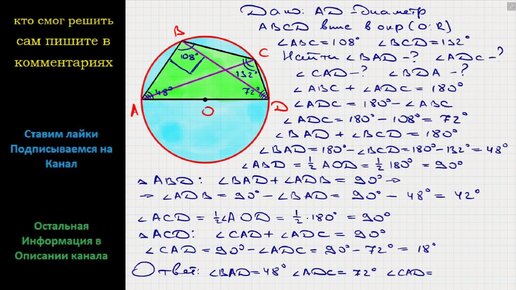 кто смог решить
сам пишите в
комментариях
Ставим лайки
Подписываемся на
Канал
Остальная
Информация в
Описании канала
B
C
A
D
O
108°
132°
48°
72°
Дано: AD - диаметр
ABCD впис в окр (O; R)
∠ABC = 108° ∠BCD = 132°
Найти ∠BAD - ? ∠ADC - ?
∠CAD - ? ∠BDA - ?
∠ABC + ∠ADC = 180°
∠ADC = 180° - ∠ABC
∠ADC = 180° - 108° = 72°
∠BAD + ∠BCD = 180°
∠BAD = 180° - ∠BCD = 180° - 132° = 48°
∠ABD = 1/2 AOD = 1/2 180° = 90°
△ABD: ∠BAD + ∠ADB = 90° ⇒
⇒ ∠ADB = 90° - ∠BAD = 90° - 48° = 42°
∠ACD = 1/2 ∠AOD = 1/2 · 180° = 90°
△ACD: ∠CAD + ∠ADC = 90°
∠CAD = 90° - ∠ADC = 90° - 72° = 18°
Ответ: ∠BAD = 48° ∠ADC = 72° ∠CAD =